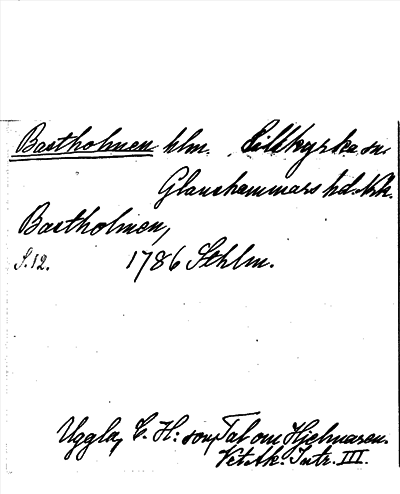 Bastholmen hlm. Lillkyrka sn.
Glanshammars hd. Nrk.
Bastholmen,
S. 12. 1786 Sthlm.
Uggla, C. H: son, Tal om Hjelmaren.
Vet. Ak. Intr. III.